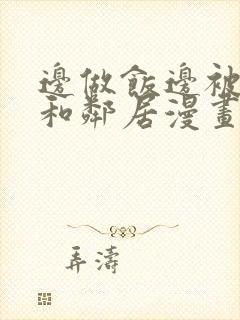 邊做飯邊被
和鄰居漫畫
弄濤